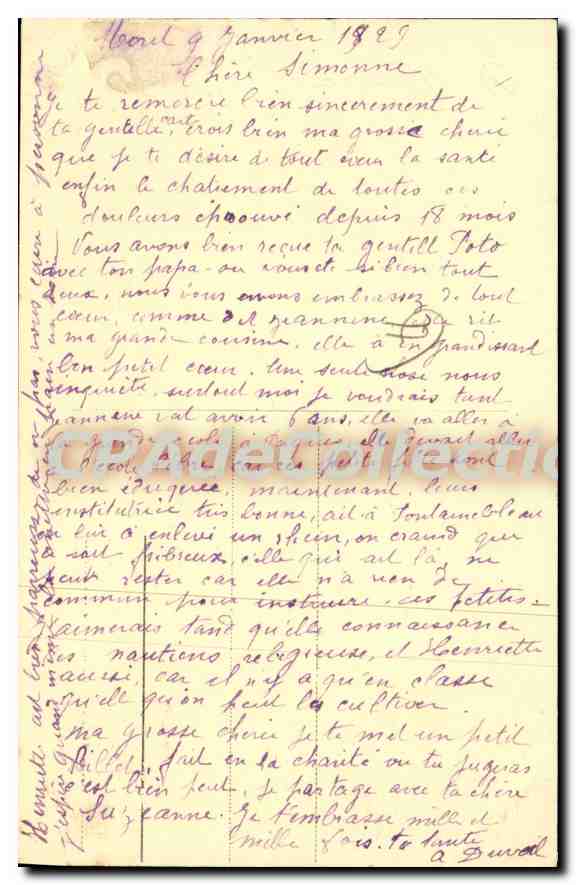 Moret 9 Janvier 1929
Chère Simonne
Je te remercie bien sincerement de
ta gentille carte, crois bien ma grosse cherie
que je te désire de tout cœur la santé
enfin le chatiement de toutes ces
douleurs époouvé depuis 18 mois
Vous avons bien reçue ta gentill Foto
avec ton papa si bien tout
deux, nous vous avons embrassez de tout
cœur, comme dit Jeannine,
ma grande cousine, elle a en grandissant
bon petit cœur. Une seule chose nous
inquiète, surtout moi je voudrais tant
Jeannine vat avoir 6 ans, elle va aller à
la grande école
l'école libre, car ces petites filles sont
bien éduquée, maintenant, leurs
institutrice très bonne, ait à Fontainebleau
on lui à enlevé un rhein, on craind que
se soit fibreux, celle qui ait là, ne
peut rester car elle n'a rien de
commun pour instruire, ces petites
J'aimerais tand qu'elle connaissance
des nautions religieuse, et Henriette
aussi, car il n'y a qu'en classe
qu'elle qu'on peut la cultiver
ma grosse cherie je te met un petit
billet, fait en la charité ou tu jugeras
c'est bien peut, je partage avec ta chere
Suzeanne. Je t'embrasse mille et
mille fois. ta tante
a Duveil
Henriette ait bien paresseuse
CPADeCollection